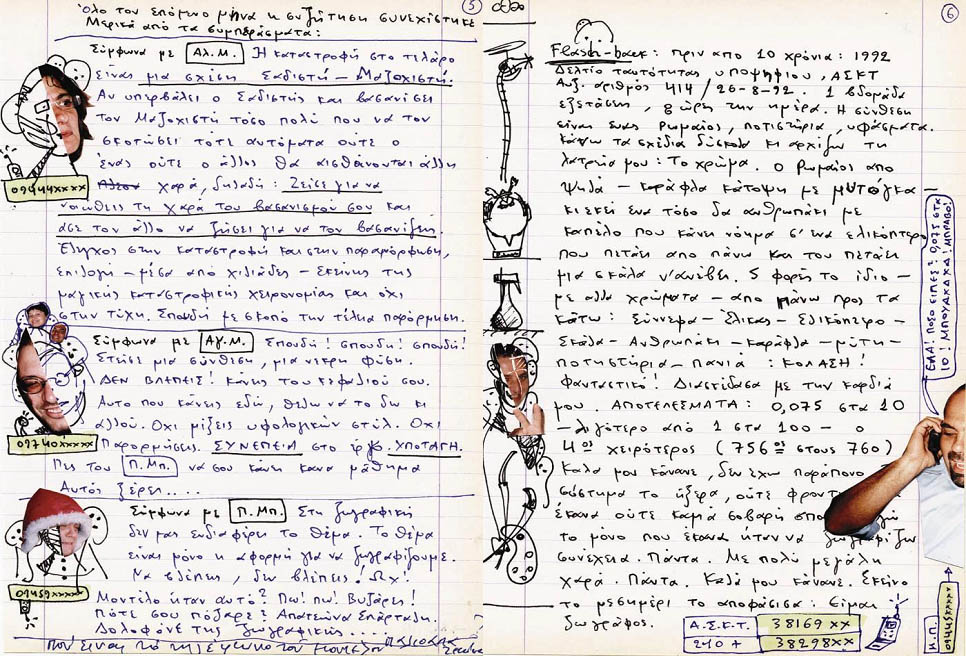 5
Όλο τον επόμενο μήνα η συζήτηση συνεχίστηκε
Μερικά από τα συμπεράσματα:
Σύμφωνα με Αλ.Μ. Η καταστροφή στο τελάρο
είναι μια σχέση Σαδιστή – Μαζοχιστή.
Αν υπερβάλει ο Σαδιστής και βασανίσει
τον Μαζοχιστή τόσο πολύ που να τον
σκοτώσει τότε αυτόματα ούτε ο
ένας ούτε ο άλλος θα αισθάνονται άλλη
χαρά, δηλαδή: Ζείσε για να
νοιώθεις τη χαρά του βασανισμού σου και
άσε τον άλλο να ζήσει για να τον βασανίζεις.
Έλεγχος στην καταστροφή και στην παραμόρφωση,
επιλογή – μέσα από χιλιάδες – εκείνης της
μαγικής καταστροφικής χειρονομίας και όχι
στην τύχη. Σπουδή με σκοπό την τέλεια παρόρμηση.
Σύμφωνα με Αγ.Μ. Σπουδή! σπουδή! σπουδή!
Στείσε μια σύνθεση, μια νεκρή φύση.
ΔΕΝ ΒΛΕΠΕΙΣ! Κάνεις του κεφαλιού σου.
Αυτο που κάνεις εδώ, θέλω να το δω κι
αλλού. Όχι μίξεις υφολογικών στυλ. Όχι
Παρορμήσεις. ΣΥΝΕΠΕΙΑ στο έργο. ΥΠΟΤΑΓΗ.
Πες του Π.Μπ. να σου κάνει κανα μάθημα
Αυτός ξέρει....
Σύμφωνα με Π.Μπ. Στη ζωγραφική
δεν μας ενδιαφέρει το θέμα. Το θέμα
είναι μόνο η αφορμή για να ζωγραφίζουμε.
Να βλέπεις, δεν βλέπεις! Ωχ!
Μοντέλο ήταν αυτό? Πω! πω! Βυζάρες!
Πότε σου πόζαρε? Απατεώνα Επάρταλη.
Δολοφόνε της ζωγραφικής....
που είναι το τηλέφωνο του μοντέλου
09444xxxx
09740xxxxx
09459xxxxx
6
Flasch-back: πριν απο 10 χρόνια: 1992
Δελτίο ταυτότητας υποψηφίου, ΑΣΚΤ
Αυξ. αριθμός 414 / 26-8-92. 1 βδομάδα
εξετάσεις, 8 ώρες την ημέρα. Η σύνθεση
είναι ένας Ρωμαίος, ποτιστήρια, υφάσματα.
Κάνω τα σχέδια δύσκολα κι αρχίζω τη
λατρεία μου: Το χρώμα. Ο ρωμαίος απο
ψηλά – καράφλα κάτοψη με μυτόγκα –
κι εκεί ένα τόσο δα ανθρωπάκι με
καπέλο που κάνει νόημα σ' ένα ελικόπτερο
που πετάει απο πάνω και του πετάει
μια σκάλα ν' ανέβει. 5 φορές το ίδιο –
με αλλα χρώματα – απο πάνω προς τα
κάτω: Σύννεφα – Έλικας – Ελικόπτερο –
Σκάλα – Ανθρωπάκι – καράφλα – μύτη –
ποτηστήρια – Πανιά : ΚΟΛΑΣΗ!
Φανταστικό! Διασκέδασα με την καρδιά
μου. ΑΠΟΤΕΛΕΣΜΑΤΑ: 0,075 στα 10
– λιγότερο από 1 στα 100 – ο
4ος χειρότερος (756ος στους 760)
Καλά μου κάνανε, δεν έχω παράπονο
σύστημα το ήξερα, ούτε φροντ
έκανα ούτε καμιά σοβαρή σπο
το μόνο που έκανα ήταν να ζωγραφίζω
συνέχεια. Πάντα. Με πολύ μεγάλη
χαρά. Πάντα. Καλά μου κάνανε. Εκείνο
το μεσημέρι το αποφάσισα: Είμαι
ζωγράφος.
Α.Σ.Κ.Τ. 38169xx
210+ 38298xx
ΕΛΑ! ΠΟΣΟ ΕΙΠΕΣ? 0,075 ΣΤΑ
10! ΜΠΟΥΑΧΑΧΑ! ΜΠΡΑΒΟ!
Κ.Π.